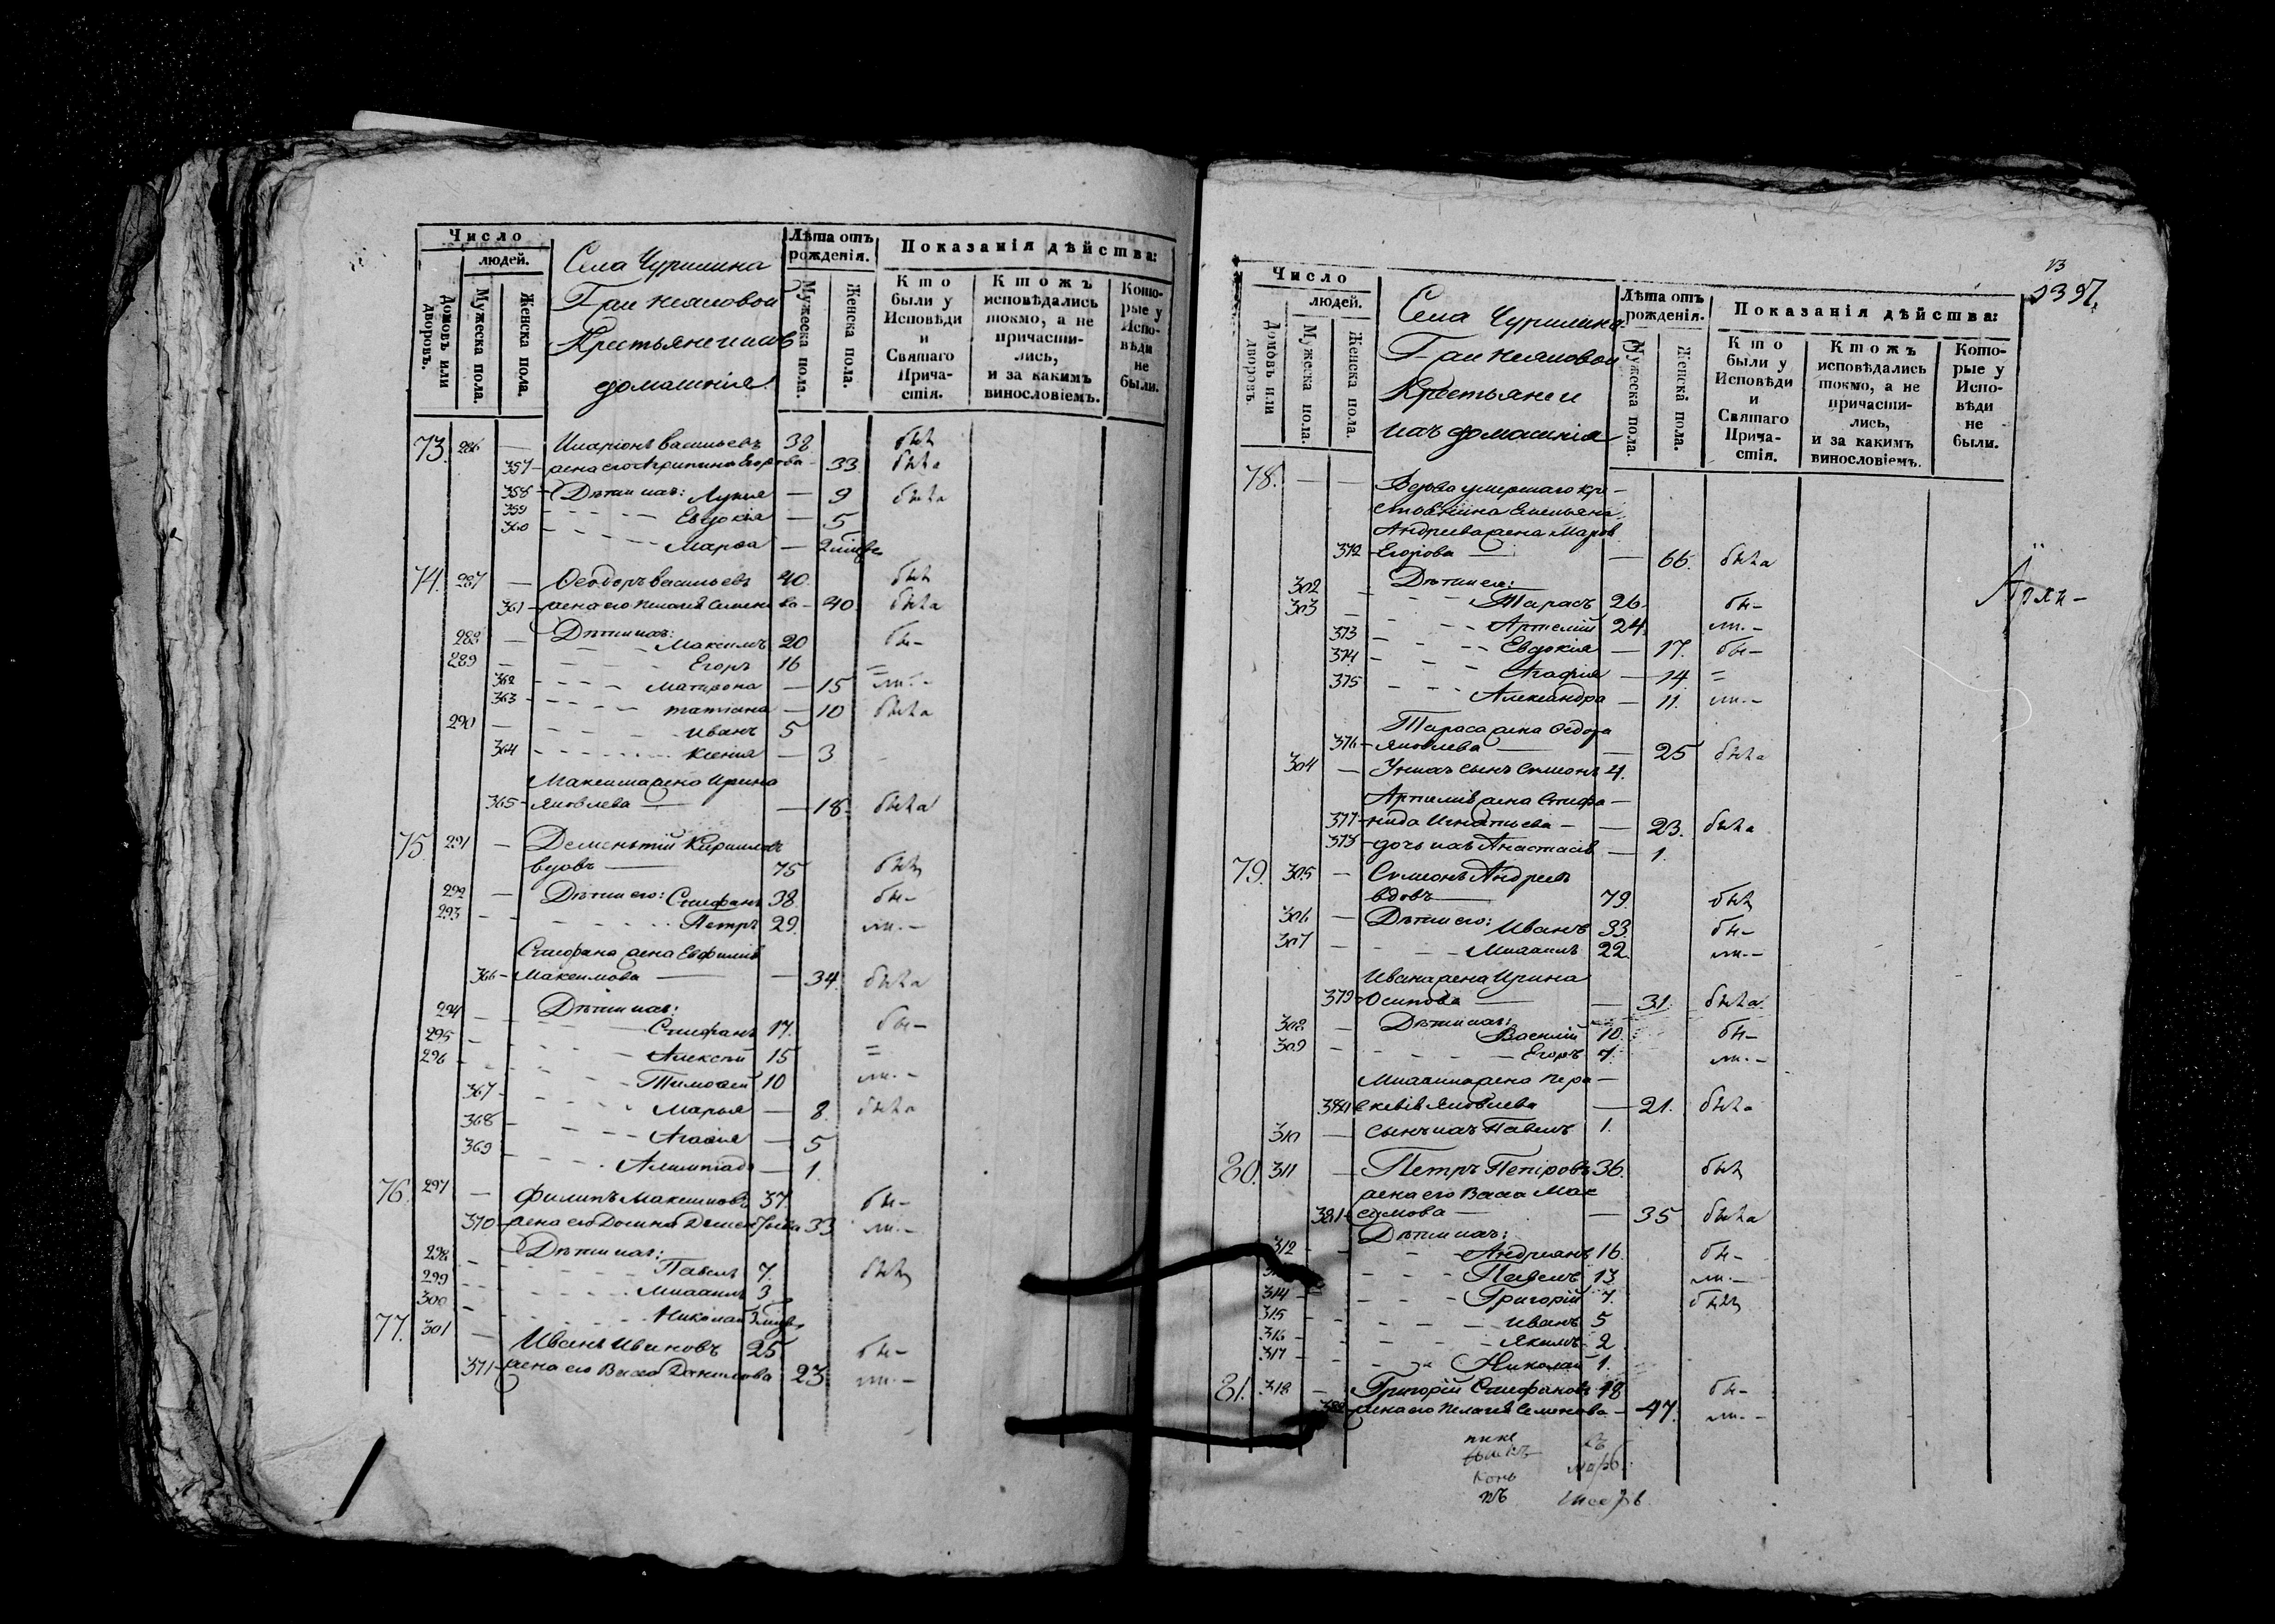 Число
людей.
Домовъ или дворовъ.
Мужеска пола.
Женска пола.
Села Чурилина
Крестьяне и ихъ
домашнія
Лѣта отъ рожденія.
Мужеска пола.
Женска пола.
Показанія дѣйства:
Кто были у Исповѣди и Святаго Прича-стія.
Ктожъ исповѣдались токмо, а не причасти-лись, и за какимъ винословіемъ.
Кото-рые у Испо-вѣди не были.
73. 286 — Иларіонъ Васильевъ 38 былъ
357 — жена его Агрипина Егорова — 33 была
358 — Дѣти ихъ: Лукия — 9 была
359 Евдокія — 5
360 Марфа —
74. 287 — Ѳеодоръ Васильевъ 40 былъ
361 — жена его Пелагія Семенова — 40 была
Дѣти ихъ:
288 — Максимъ 20 бы-
289 — Егоръ 16 =
362 Матрона — 15 ли.-
363 татіана — 10 была
290 — Иванъ 5
364 Ксенія — 3
Максима жена Ирина
365 — Яковлева — 18 была
75. 291 — Дементій Кириловъ
вдовъ — 75 былъ
292 — Дѣти его: Стефанъ 38. бы-
293 Петръ 29. ли.-
Стефана жена Евфимія
366 — Максимова — 34. была
Дѣти ихъ:
294 — Стефанъ 17. бы-
295 — Алексѣй 15 =
296 — Тимофей 10 ли.-
367 Марья — 8. была
368 Агафія — 5
369 — 1.
76. 297 — Филипъ Максимовъ 37. бы-
370 — жена его Домна Дементьева 33 ли.-
Дѣти ихъ:
298 — Павелъ 7. былъ
299 Михаилъ 3
300 Николай
77. 301 — Иванъ Ивановъ 25 бы-
371 — жена его Васса Данилова 23 ли.-
97.
Число
людей.
Домовъ или дворовъ.
Мужеска пола.
Женска пола.
Села Чурилина
Крестьяне и
ихъ домашнія
Лѣта отъ рожденія.
Мужеска пола.
Женска пола.
Показанія дѣйства:
Кто были у Исповѣди и Святаго Прича-стія.
Ктожъ исповѣдались токмо, а не причасти-лись, и за какимъ винословіемъ.
Кото-рые у Испо-вѣди не были.
78. — — Вдова умершаго кре-
стьянина Емельяна
Андреева жена Марфа
372 — Егорова — 66. была
Дѣти ея:
302 Тарасъ 26. бы-
303 — Артемій 24. ли.-
373 Евдокія — 17. бы-
374 Агафія — 14 =
375 Александра — 11. ли.-
Тараса жена Федора
376 — Яковлева — 25 была
304 — У нихъ сынъ Симеонъ 4.
Артемія жена Стефа-
377 — нида Игнатьева — 23. была
378 — дочь ихъ Анастасія — 1.
79. 305 — Симеонъ Андреевъ
вдовъ — 79. былъ
306 — Дѣти его: Иванъ 33. бы-
307 — Михаилъ 22. ли.-
Ивана жена Ирина
379 — Осипова — 31. была
Дѣти ихъ:
308 — Василій 10. бы-
309 — Егоръ 7. ли.-
Михаила жена Пера-
380 скевія Яковлева — 21. была
310 — Сынъ ихъ Павелъ 1.
80. 311 — Петръ Петровъ 36. былъ
жена его Васса Мак
381 — симова — 35 была
Дѣти ихъ:
312 — Андріянъ 16. бы-
Павелъ 13. ли.-
314 — Григорій 7. былъ
315 — Иванъ 5
316 — Якимъ 2
317 — Николай 1.
81. 318 — Григорій Стефановъ 48 бы-
жена его Пелагія Семенова — 47. ли.-